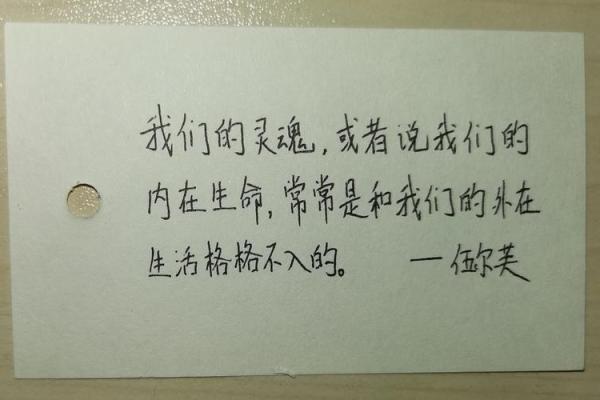 我们的灵魂,或者说我们的
内在生命,常常是和我们的外在
生活格格不入的。 —伍尔芙